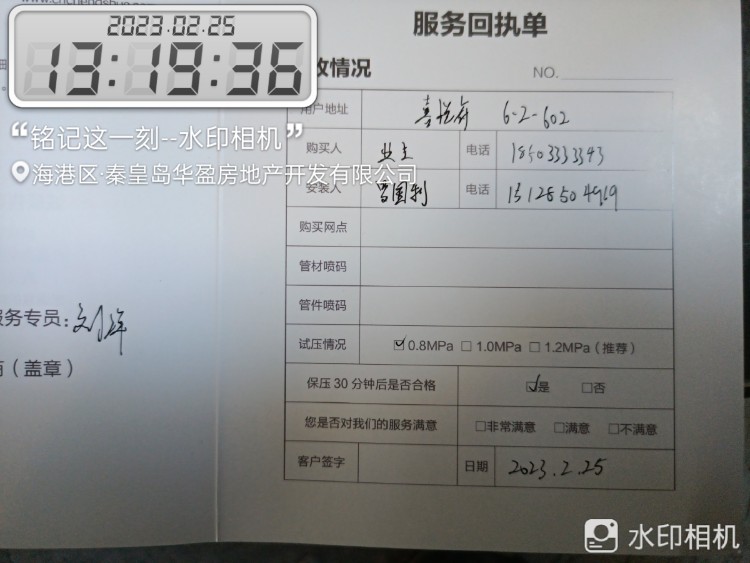 2023.02.25
13:19:36
“铭记这一刻--水印相机”
海港区·秦皇岛华盈房地产开发有限公司
服务回执单
收情况
NO.
用户地址 喜悦府 6-2-602
购买人 业主 电话 18503333393
安装人 曾国利 电话
购买网点
管材喷码
管件喷码
试压情况 ☑0.8MPa □1.0MPa □1.2MPa(推荐)
保压30分钟后是否合格 ☑是 □否
您是否对我们的服务满意 □非常满意 □满意 □不满意
客户签字 日期 2023.2.25
服务专员:刘洋
(盖章)
水印相机